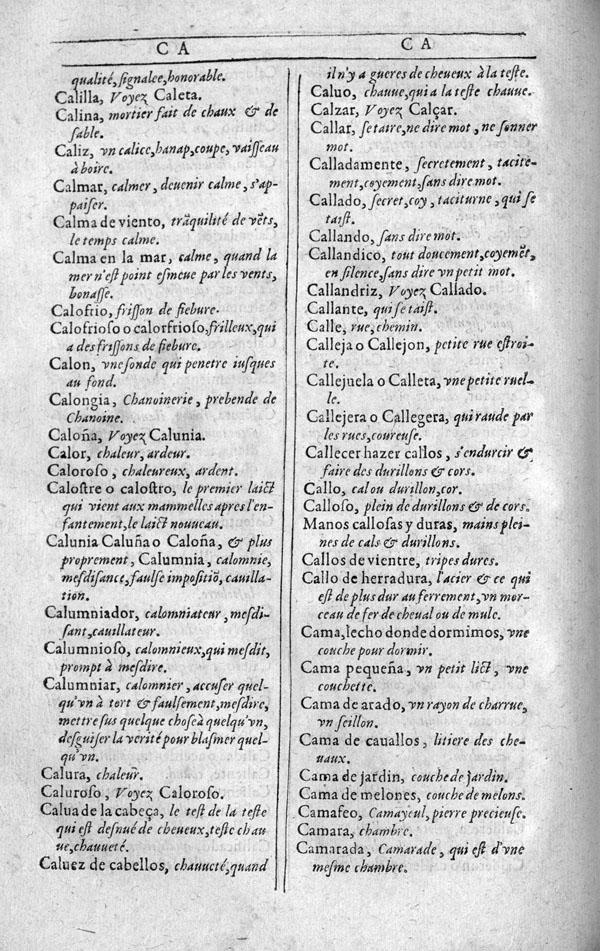 C A
qualité, signalee, honorable.
Calilla, Voyez Caleta.
Calina, mortier fait de chaux & de
sable.
Caliz, vn calice, hanap, coupe, vaisseau
à boire.
Calmar, calmer, deuenir calme, s'ap-
paiser.
Calma de viento, trãquilité de vẽts,
le temps calme.
Calma en la mar, calme, quand la
mer n'est point esmeue par les vents,
bonasse.
Calofrio, frisson de fiebure.
Calofrioso o calorfrioso, frilleux, qui
a des frissons de fiebure.
Calon, vne sonde qui penetre iusques
au fond.
Calongia, Chanoinerie, prebende de
Chanoine.
Caloña, Voyez Calunia.
Calor, chaleur, ardeur.
Caloroso, chaleureux, ardent.
Calostre o calostro, le premier laict
qui vient aux mammelles apres l'en-
fantement, le laict nouueau.
Calunia Caluña o Caloña, & plus
proprement, Calumnia, calomnie,
mesdisance, faulse impositiõ, cauilla-
tion.
Calumniador, calomniateur, mesdi-
sant, cauillateur.
Calumnioso, calomnieux, qui mesdit,
prompt à mesdire.
Calumniar, calomnier, accuser quel-
qu'vn à tort & faulsement, mesdire,
mettre sus quelque chose à quelqu'vn,
desguiser la verité pour blasmer quel-
qu'vn.
Calura, chaleur.
Caluroso, Voyez Caloroso.
Calua de la cabeça, le test de la teste
qui est desnué de cheueux, teste chau
ue, chauueté.
Caluez de cabellos, chauueté, quand
C A
il n'y a gueres de cheueux à la teste.
Caluo, chauue, qui a la teste chauue.
Calzar, Voyez Calçar.
Callar, se taire, ne dire mot, ne sonner
mot.
Calladamente, secretement, tacite-
ment, coyement, sans dire mot.
Callado, secret, coy, taciturne, qui se
taist.
Callando, sans dire mot.
Callandico, tout doucement, coyemẽt,
en silence, sans dire vn petit mot.
Callandriz, Voyez Callado.
Callante, qui se taist.
Calle, rue, chemin.
Calleja o Callejon, petite rue estroi-
te.
Callejuela o Calleta, vne petite ruel-
le.
Callejera o Callegera, qui raude par
les rues, coureuse.
Callecer hazer callos, s'endurcir &
faire des durillons & cors.
Callo, cal ou durillon, cor.
Calloso, plein de durillons & de cors.
Manos callosas y duras, mains plei-
nes de cals & durillons.
Callos de vientre, tripes dures.
Callo de herradura, l'acier & ce qui
est de plus dur au ferrement, vn mor-
ceau de fer de cheual ou de mule.
Cama, lecho donde dormimos, vne
couche pour dormir.
Cama pequeña, vn petit lict, vne
couchette.
Cama de arado, vn rayon de charrue,
vn seillon.
Cama de cauallos, litiere des che-
uaux.
Cama de jardin, couche de jardin.
Cama de melones, couche de melons.
Camafeo, Camayeul, pierre precieuse.
Camara, chambre.
Camarada, Camarade, qui est d'vne
mesme chambre.